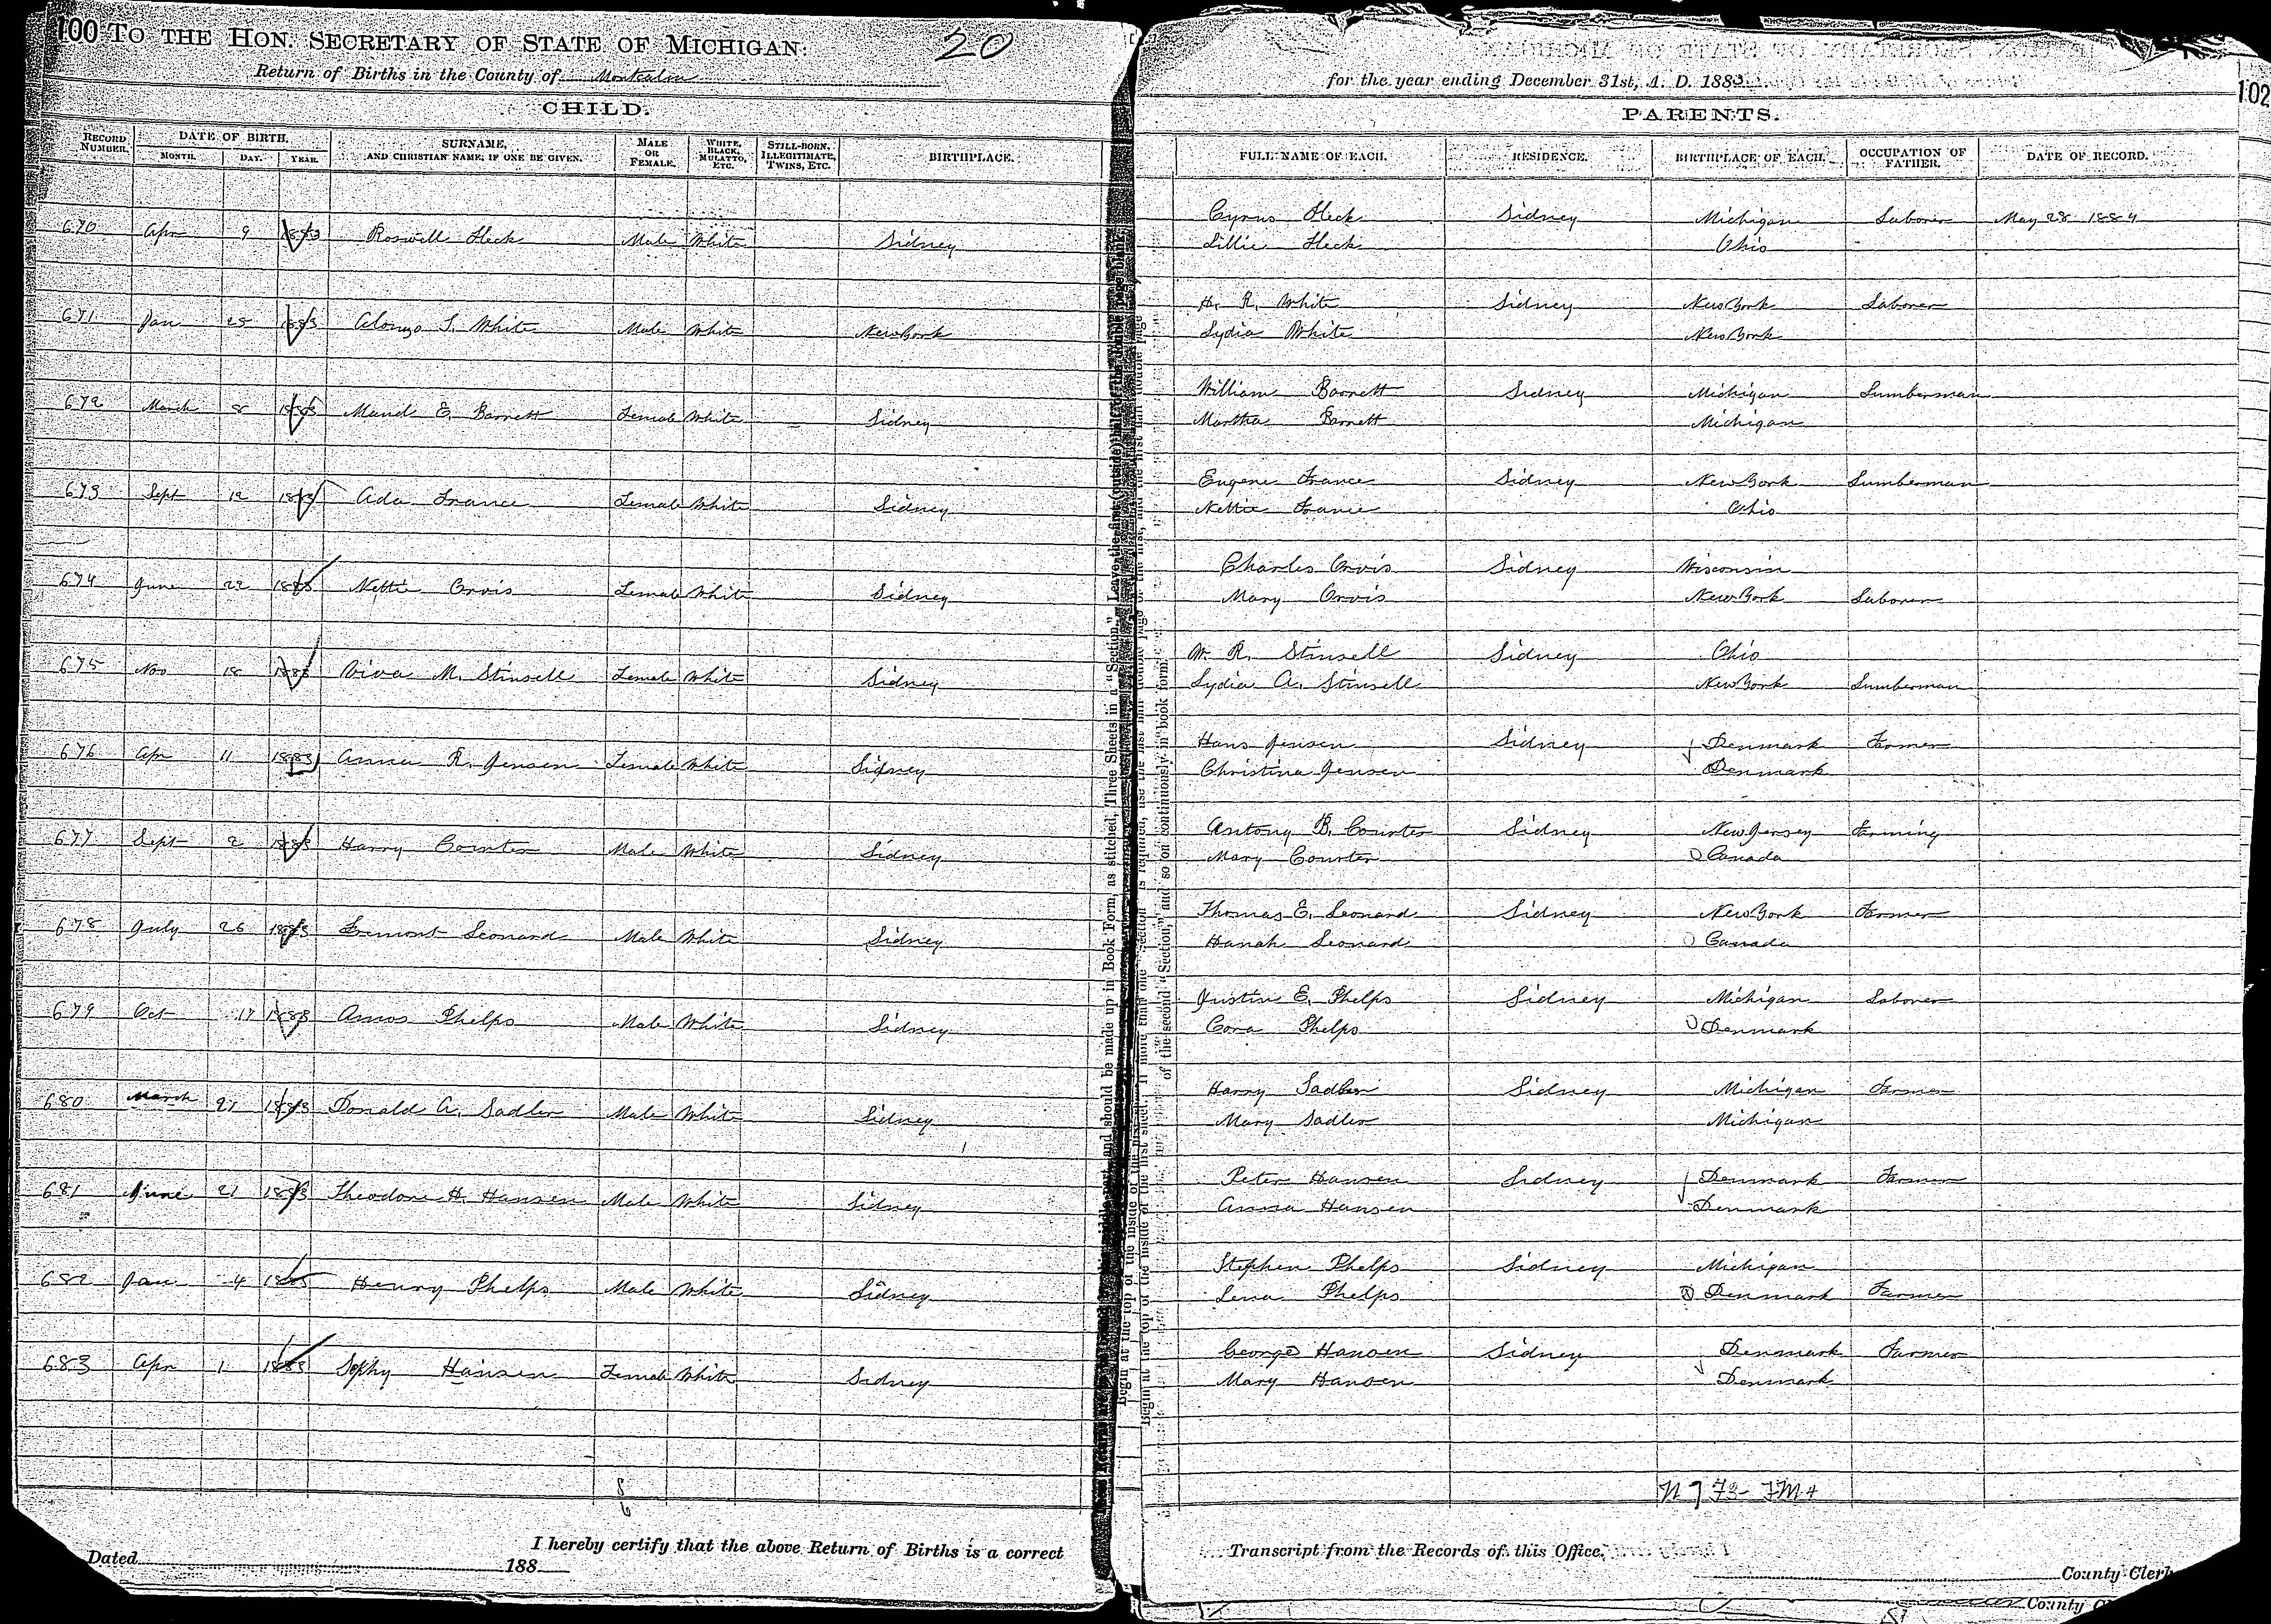 100 TO THE HON. SECRETARY OF STATE OF MICHIGAN: 20
Return of Births in the County of Montcalm
CHILD.
RECORD NUMBER. DATE OF BIRTH. MONTH. DAY. YEAR. SURNAME, AND CHRISTIAN NAME, IF ONE BE GIVEN. MALE OR FEMALE. WHITE, BLACK, MULATTO, ETC. STILL-BORN, ILLEGITIMATE, TWINS, ETC. BIRTHPLACE.
670 Apr 9 1883 Roswell Heck Male White Sidney
671 Jan 25 1883 Alonzo S. White Male White New York
672 March 8 1883 Maud E. Barnett Female White Sidney
673 Sept 12 1883 Ada France Female White Sidney
674 June 22 1883 Nettie Orvis Female White Sidney
675 Nov 18 1883 Viva M. Stinsell Female White Sidney
676 Apr 11 1883 Anna R. Jensen Female White Sidney
677 Sept 2 1883 Harry Courter Male White Sidney
678 July 26 1883 Fremont Leonard Male White Sidney
679 Oct 17 1883 Amos Phelps Male White Sidney
680 March 27 1883 Donald A. Sadler Male White Sidney
681 June 21 1883 Theodore H. Hansen Male White Sidney
682 Jan 4 1883 Henry Phelps Male White Sidney
683 Apr 1 1883 Sophy Hansen Female White Sidney
8
6
I hereby certify that the above Return of Births is a correct
Dated 188
for the year ending December 31st, A. D. 1883
102
PARENTS.
FULL NAME OF EACH. RESIDENCE. BIRTHPLACE OF EACH. OCCUPATION OF FATHER. DATE OF RECORD.
Cyrus Heck Sidney Michigan Laborer May 28 1884
Lillie Heck Ohio
H. R. White Sidney New York Laborer
Lydia White New York
William Barnett Sidney Michigan Lumberman
Martha Barnett Michigan
Eugene France Sidney New York Lumberman
Nettie France Ohio
Charles Orvis Sidney Wisconsin
Mary Orvis New York Laborer
W. R. Stinsell Sidney Ohio
Lydia A. Stinsell New York Lumberman
Hans Jensen Sidney Denmark Farmer
Christina Jensen Denmark
Antony B. Courter Sidney New Jersey Farming
Mary Courter Canada
Thomas E. Leonard Sidney New York Farmer
Hanah Leonard Canada
Justin E. Phelps Sidney Michigan Laborer
Cora Phelps Denmark
Harry Sadler Sidney Michigan Farmer
Mary Sadler Michigan
Peter Hansen Sidney Denmark Farmer
Anna Hansen Denmark
Stephen Phelps Sidney Michigan
Lena Phelps Denmark Farmer
George Hansen Sidney Denmark Farmer
Mary Hansen Denmark
Transcript from the Records of this Office.
County Clerk
County